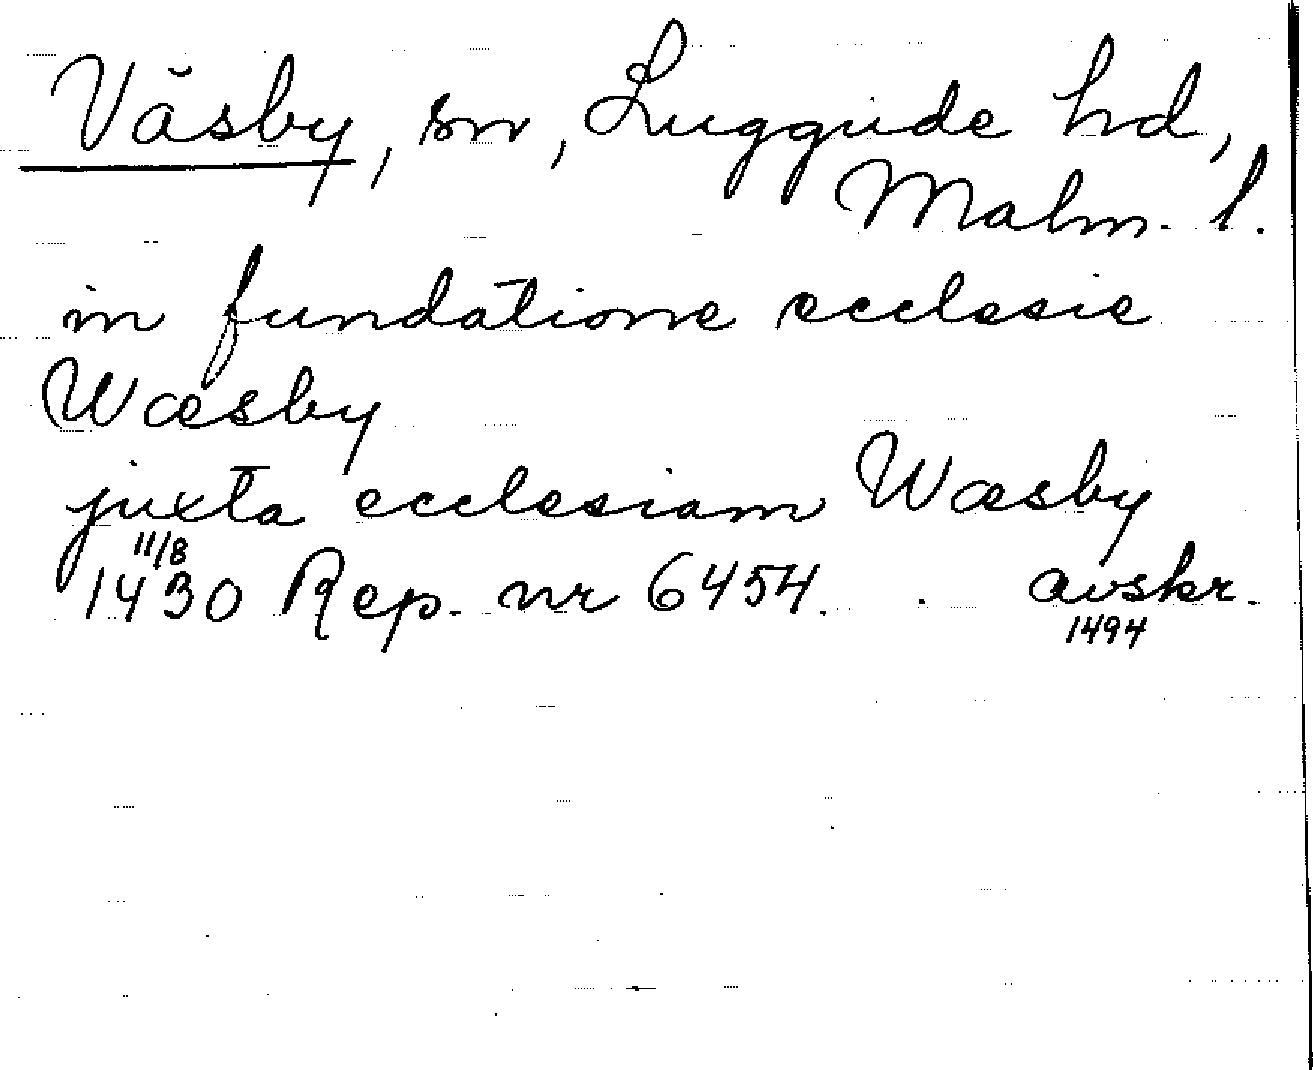 Väsby, sn, Luggude hd,
Malm. l.
in fundatione ecclesie
Wæsby
juxta ecclesiam Wæsby
11/8
1430 Rep. nr 6454. avskr.
1494